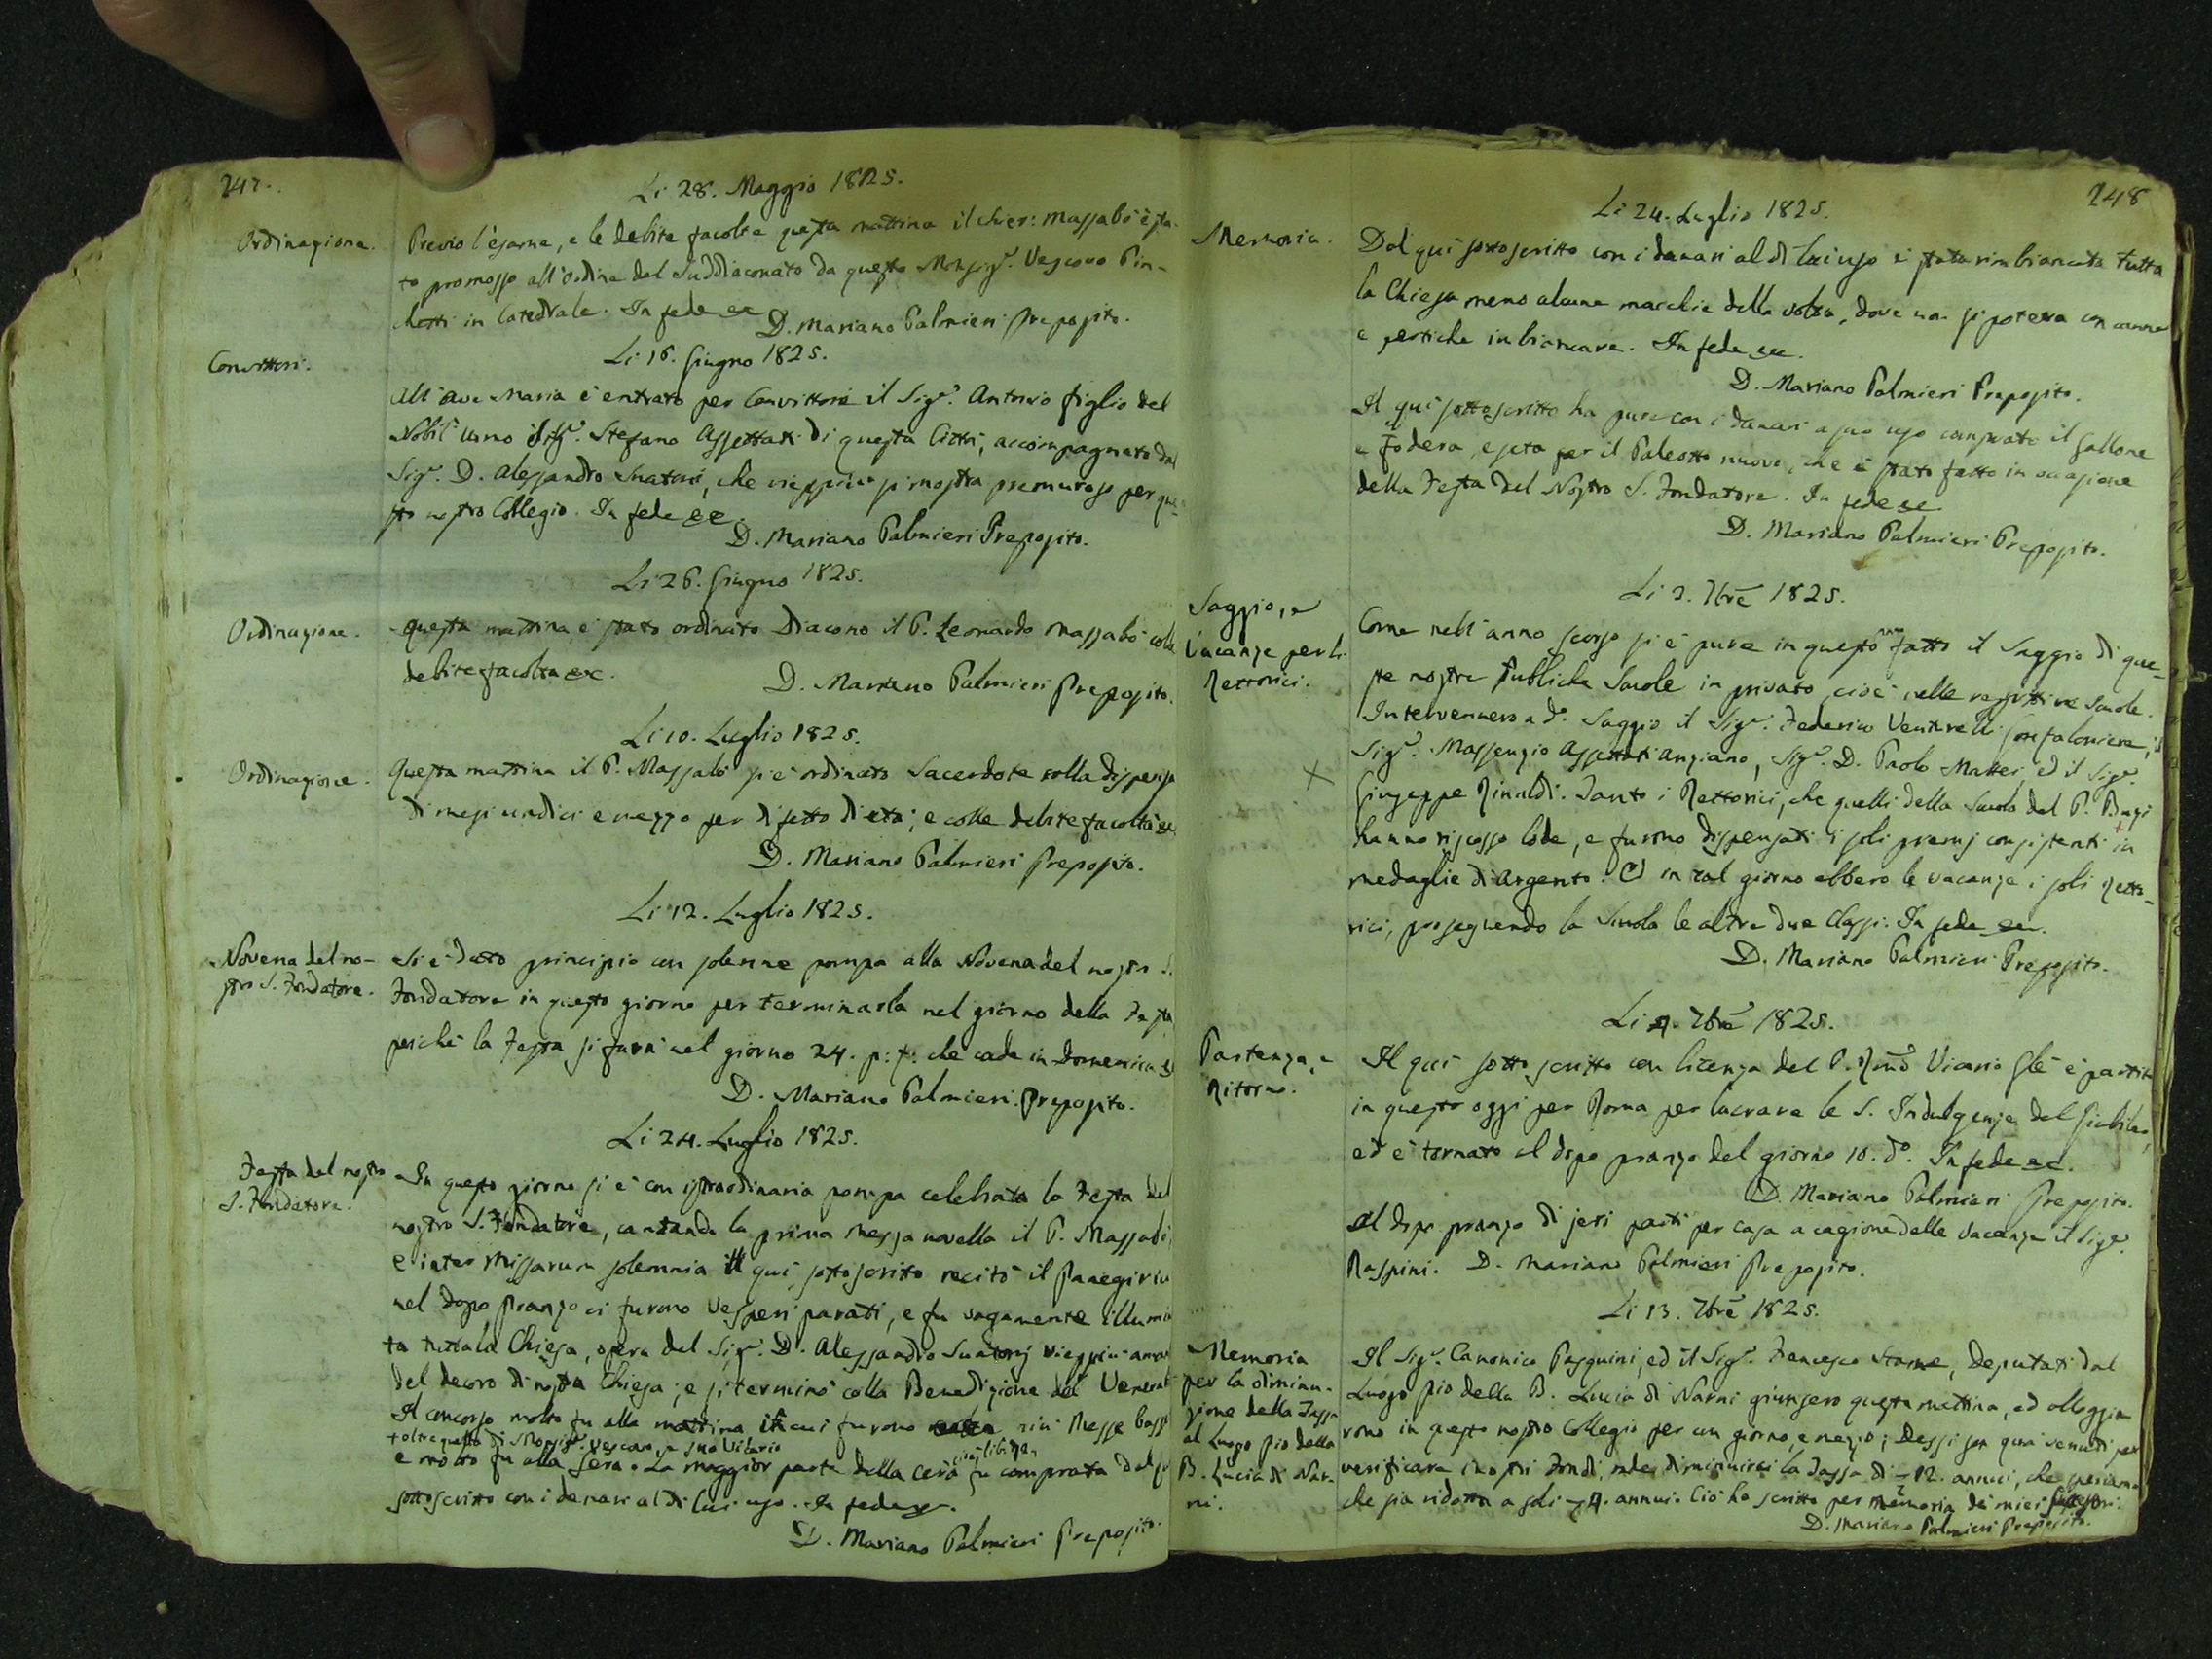 247.
Li 28. Maggio 1825.
Ordinazione.
Previo l'esame, e le debite facolta questa mattina il Chier: Massabò è sta-
to promosso all'Ordine del Suddiaconato da questo Monsigr. Vescovo Pin-
chetti in Catedrale. In fede &c
D. Mariano Palmieri Preposito.
Li 16. Giugno 1825.
Convittori.
All'Ave Maria è entrato per Convittore il Sigr. Antonio figlio del
Nobil Uomo Sigr. Stefano Assettati di questa Città, accompagnato dal
Sigr. D. Alessandro Suatoni, che vieppiu si mostra premuroso per que-
sto nostro Collegio. In fede &c.
D. Mariano Palmieri Preposito.
Li 26. Giugno 1825.
Ordinazione.
Questa mattina è stato ordinato Diacono il P. Leonardo Massabò colle
debite facolta &c.
D. Mariano Palmieri Preposito.
Li 10. Luglio 1825.
Ordinazione.
Questa mattina il P. Massabò si è ordinato Sacerdote colla dispensa
di mesi undici e mezzo per difetto di età; e colle debite facoltà &c
D. Mariano Palmieri Preposito.
Li 12. Luglio 1825.
Novena del no-
stro S. Fondatore.
Si è dato principio con solenne pompa alla Novena del nostro S.
Fondatore in questo giorno per terminarla nel giorno della Festa
perchè la Festa si farà nel giorno 24. p: f: che cade in Domenica
D. Mariano Palmieri Preposito.
Li 24. Luglio 1825.
Festa del nostro
S. Fondatore.
In questo giorno si è con istraordinaria pompa celebrata la Festa del
nostro S. Fondatore, cantando la prima Messa novella il P. Massabò,
e inter Missarum solemnia il qui sottoscritto recitò il Panegirico
nel dopo pranzo ci furono Vesperi parati, e fu vagamente illumina
ta tutta la Chiesa, opera del Sigr. D. Alessandro Suatonj vieppiu aman
del decoro di nostra Chiesa; e si terminò colla Benedizione del Venerab
Il concorso molto fu alla mattina in cui furono Messe basse
+ oltre quella di Monsigr. Vescovo, e suo Vicario
e molto fu alla sera. La maggior parte della cera fu comprata dal
sottoscritto con i denari al di lui uso. In fede &c.
D. Mariano Palmieri Preposito.
248
Li 24. Luglio 1825.
Memoria.
Dal qui sottoscritto con i danari al di lui uso è stata rimbiancata tutta
la Chiesa meno alcune macchie della volta, dove non si poteva con canne
e pertiche imbiancare. In fede &c.
D. Mariano Palmieri Preposito.
Il qui sottoscritto ha pure con i danari a suo uso comprato il Gallone
e Fodera, e seta per il Paleotto nuovo, che è stato fatto in occasione
della Festa del Nostro S. Fondatore. In fede &c
D. Mariano Palmieri Preposito.
Li 3. 7bre 1825.
Saggio, e
Vacanze per li
Rettorici.
Come nell'anno scorso si è pure in questo anno fatto il Saggio di que-
ste nostre Pubbliche Scuole in privato, cioè nelle respettive Scuole.
Intervennero a do. Saggio il Sigr. Federico Venturelli Gonfaloniere, il
Sigr. Massenzio Assettati Anziano, Sigr. D. Paolo Mattei, ed il Sigr.
Giuseppe Rinaldi. Tanto i Rettorici, che quelli della Scuola del P.
hanno riscosso lode, e furono dispensati i soli premj consistenti in
medaglie di argento. In tal giorno ebbero le vacanze i soli Retto-
rici, proseguendo la Scuola le altre due Classi. In fede &c.
D. Mariano Palmieri Preposito.
Li 4. 7bre 1825.
Partenza, e
Ritorno.
Il qui sottoscritto con licenza del P. Rmo Vicario Gle è partito
in questo oggi per Roma per lucrare le S. Indulgenze del Giubileo,
ed è tornato al dopo pranzo del giorno 10. do. In fede &c.
D. Mariano Palmieri Preposito.
Al dopo pranzo di jeri partì per casa a cagione delle vacanze il Sigr.
Raspini. D. Mariano Palmieri Preposito.
Li 13. 7bre 1825.
Memoria
per la diminu-
zione della Tassa
al Luogo Pio della
B. Lucia di Nar-
ni.
Il Sigr. Canonico Pasquini, ed il Sigr. Francesco Deputati dal
Luogo Pio della B. Lucia di Narni giunsero questa mattina, ed alloggia
rono in questo nostro Collegio per un giorno, e mezzo; Dessi son qua venuti per
verificare i nostri Fondi, onde diminuirci la Tassa di 12. annui, che speriamo
che sia ridotta a soli 4. annui. Ciò ho scritto per memoria de miei successori.
D. Mariano Palmieri Preposito.